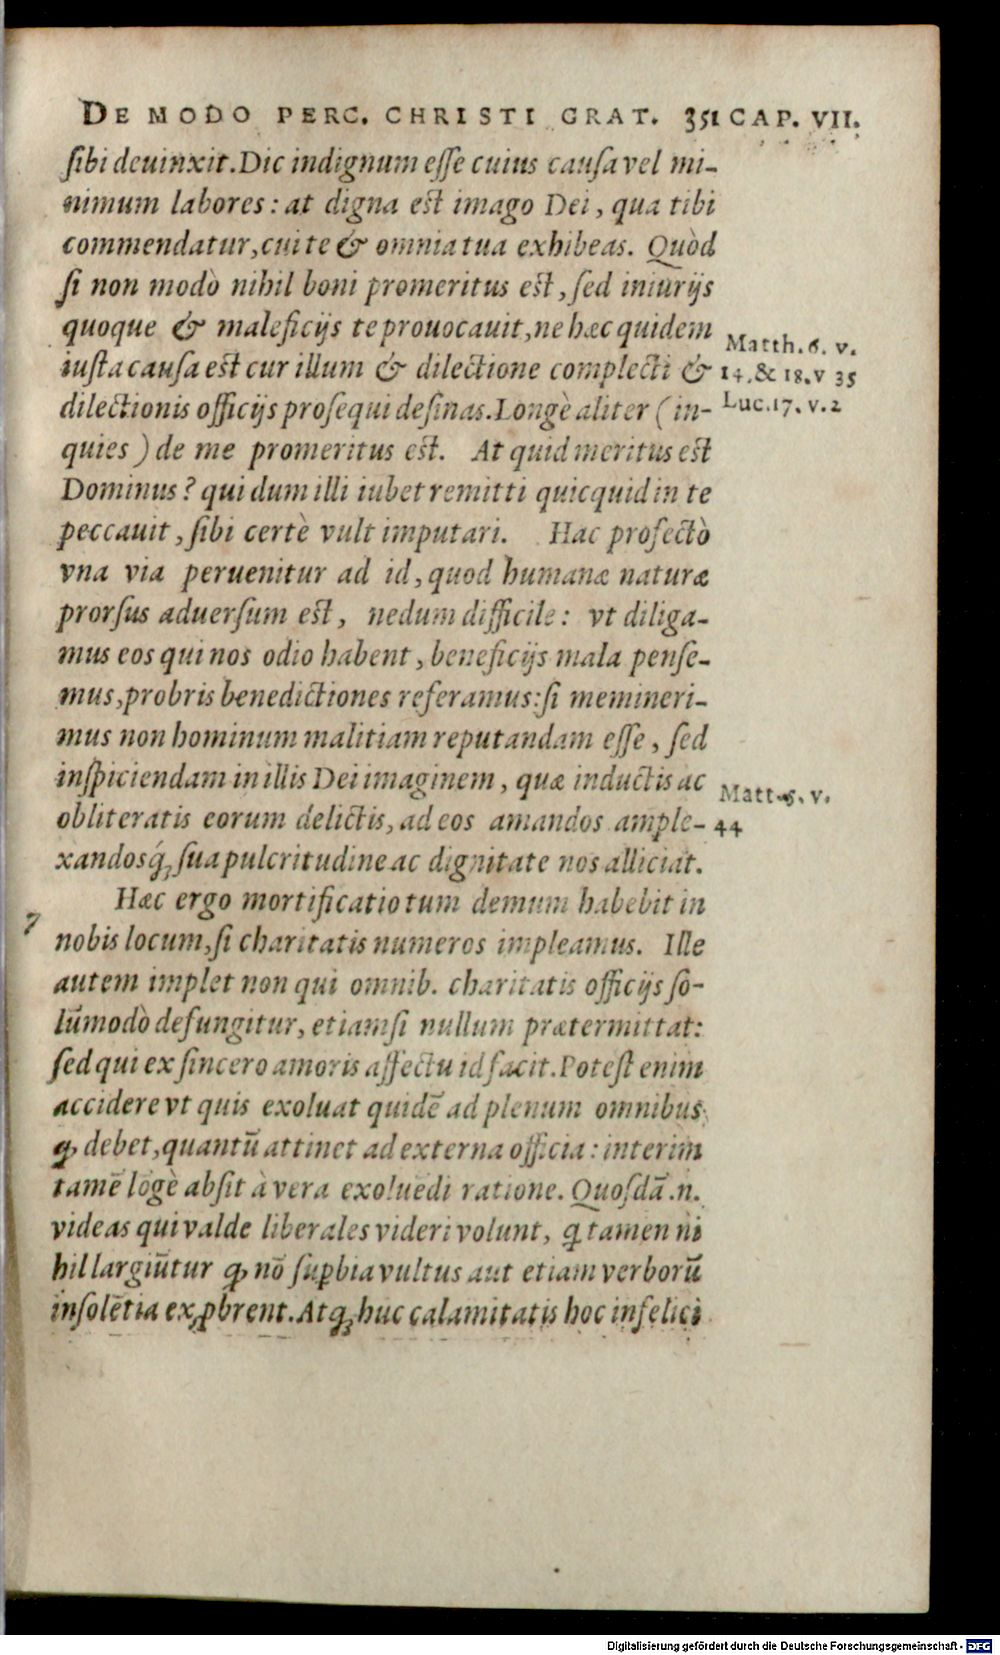 DE MODO PERC. CHRISTI GRAT. 351 CAP. VII.
sibi deuinxit. Dic indignum esse cuius causa vel mi-
nimum labores: at digna est imago Dei, qua tibi
commendatur, cui te & omnia tua exhibeas. Quòd
si non modò nihil boni promeritus est, sed iniurijs
quoque & maleficijs te prouocauit, ne hæc quidem
iusta causa est cur illum & dilectione complecti &
dilectionis officijs prosequi desinas. Longè aliter (in-
quies) de me promeritus est. At quid meritus est
Dominus? qui dum illi iubet remitti quicquid in te
peccauit, sibi certè vult imputari. Hac profectò
vna via peruenitur ad id, quod humanæ naturæ
prorsus aduersum est, nedum difficile: vt diliga-
mus eos qui nos odio habent, beneficijs mala pense-
mus, probris benedictiones referamus: si memineri-
mus non hominum malitiam reputandam esse, sed
inspiciendam in illis Dei imaginem, quæ inductis ac
obliteratis eorum delictis, ad eos amandos ample-
xandosq́; sua pulcritudine ac dignitate nos alliciat.
Hæc ergo mortificatio tum demum habebit in
nobis locum, si charitatis numeros impleamus. Ille
autem implet non qui omnib. charitatis officijs so-
lũmodò defungitur, etiamsi nullum prætermittat:
sed qui ex sincero amoris affectu id facit. Potest enim
accidere vt quis exoluat quidẽ ad plenum omnibus
ꝙ debet, quantũ attinet ad externa officia: interim
tamẽ lõgè absit à vera exoluẽdi ratione. Quosdã .n.
videas qui valde liberales videri volunt, q tamen ni
hil largiũtur ꝙ nõ suꝑbia vultus aut etiam verborũ
insolẽtia exꝓbrent. Atq; huc calamitatis hoc infelici
Matth. 6. v.
14. & 18. v 35
Luc. 17. v. 2
Matt. 5. v.
44
7
Digitalisierung gefördert durch die Deutsche Forschungsgemeinschaft - DFG